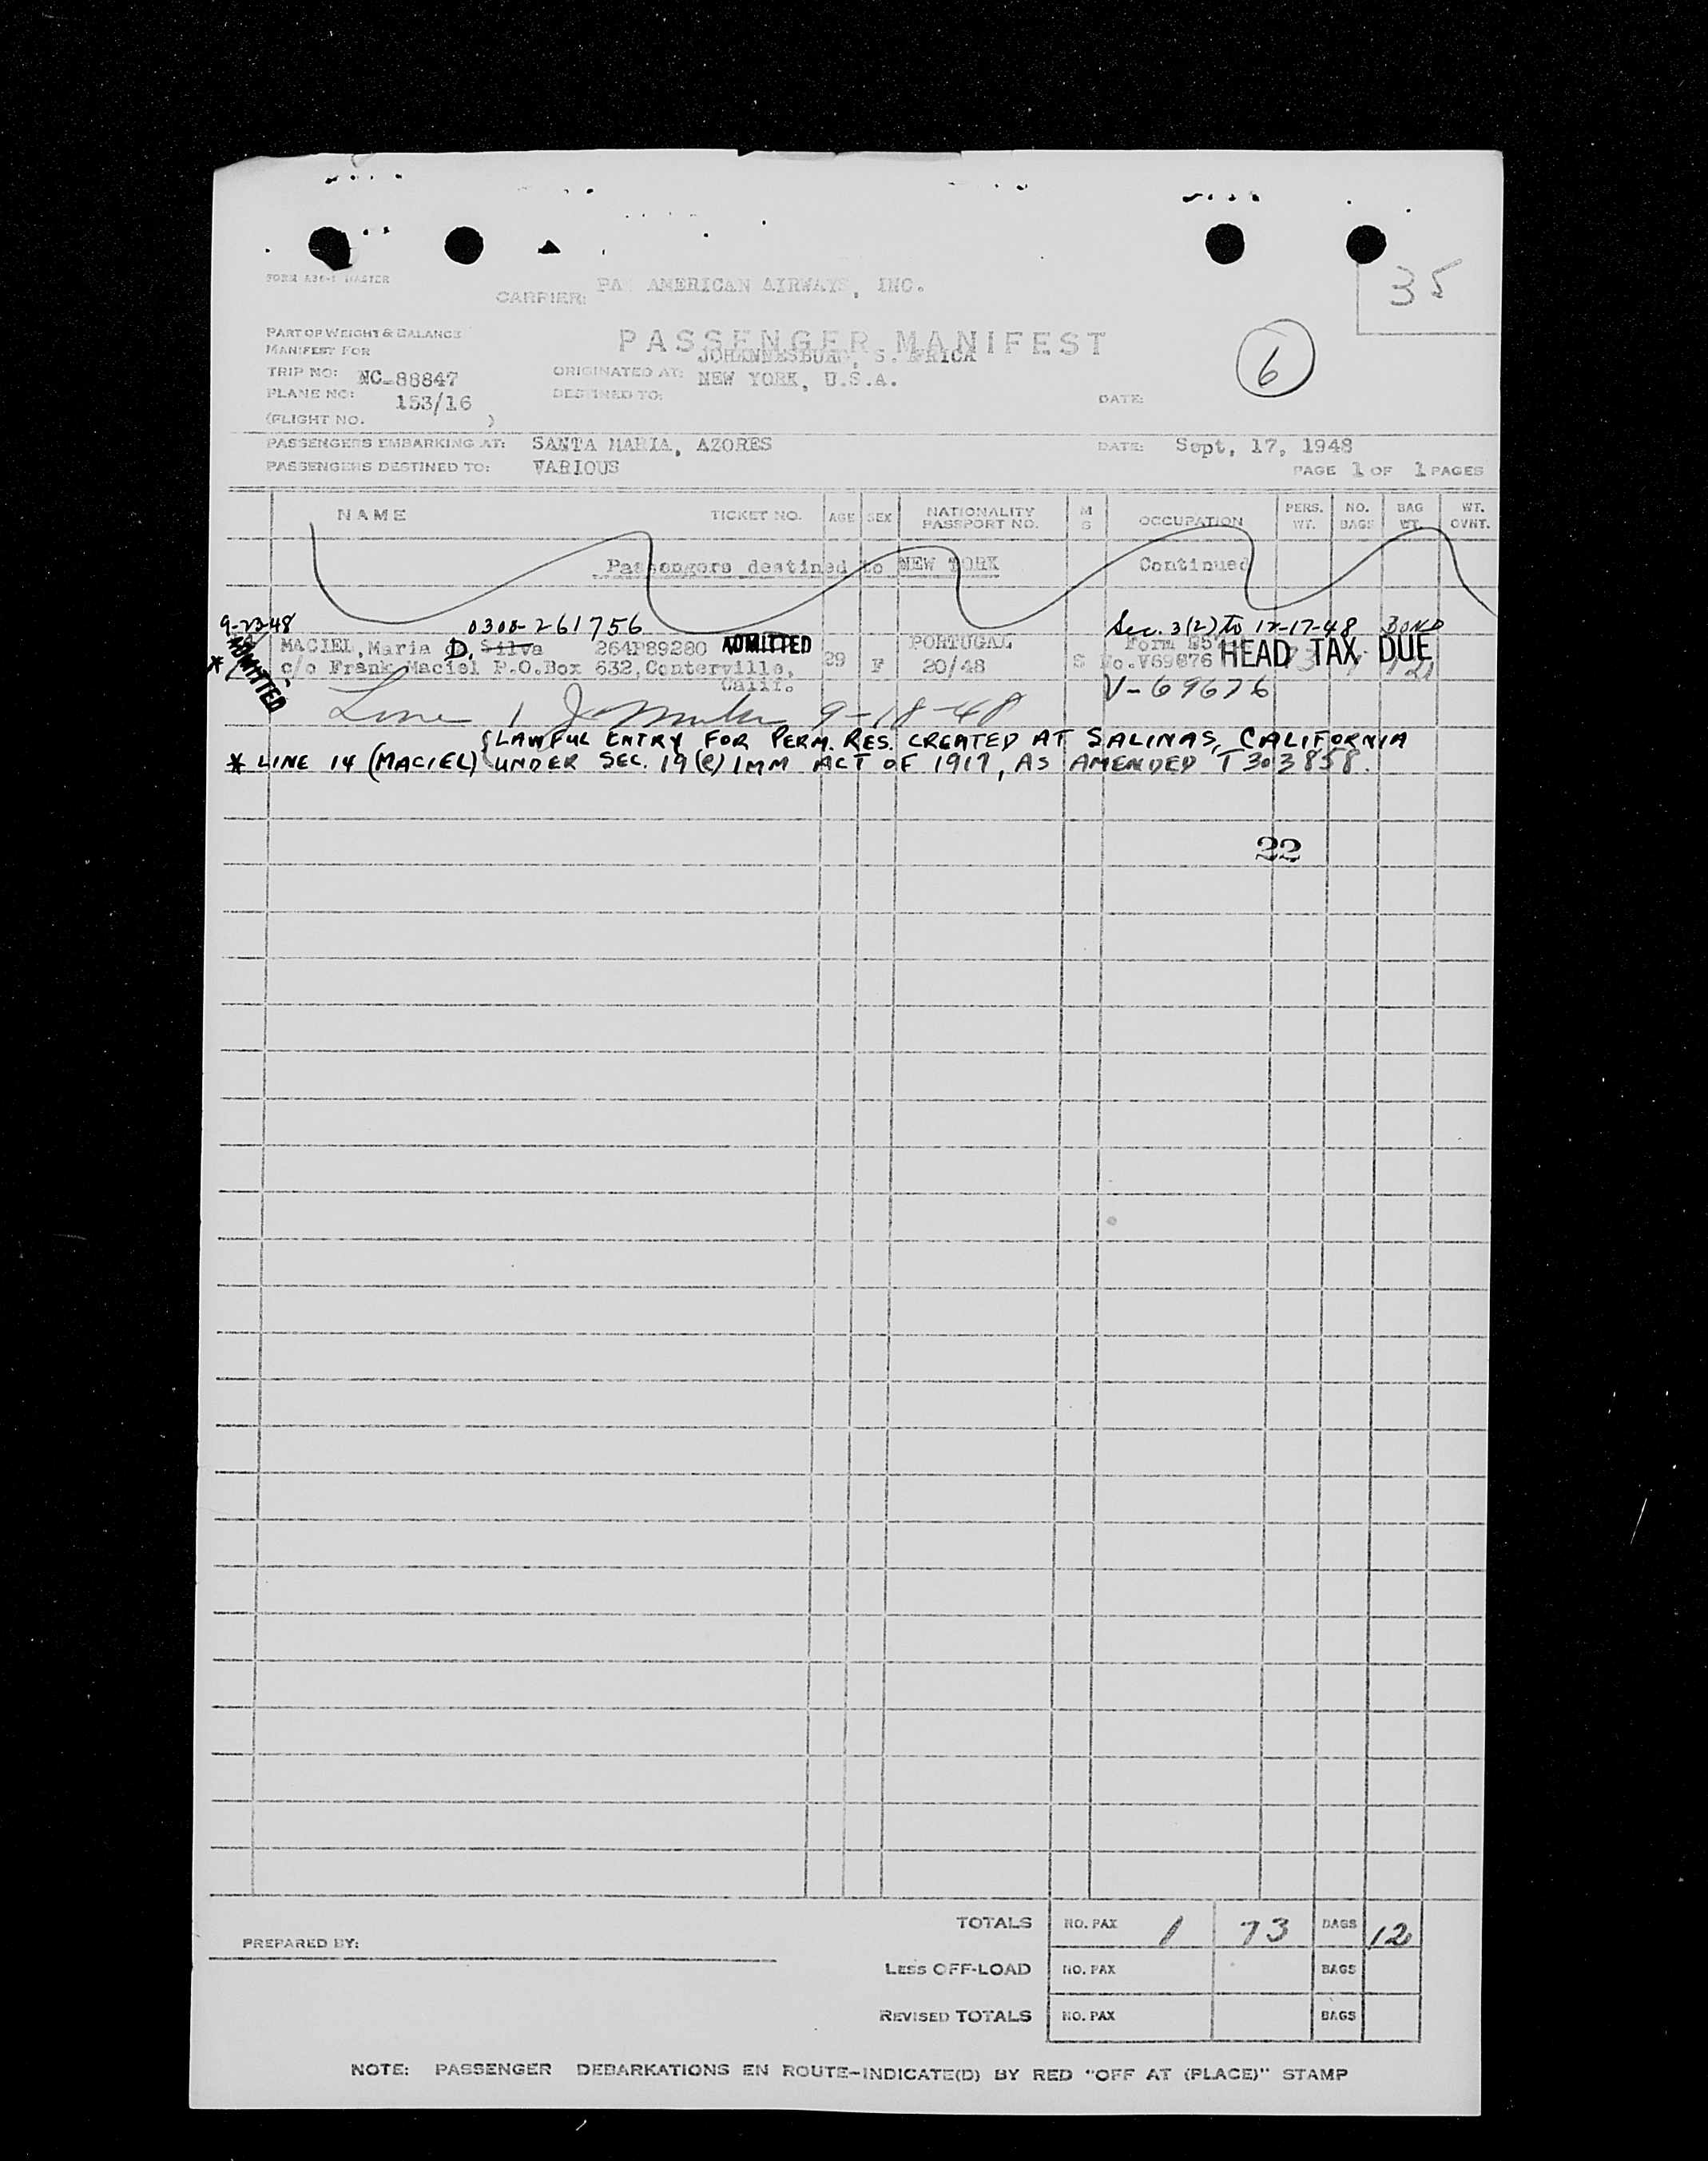 FORM A30-1 MASTER
CARRIER: PAN AMERICAN AIRWAYS, INC.
35
PART OF WEIGHT & BALANCE
MANIFEST FOR
PASSENGER MANIFEST
6
TRIP NO: NC-88847
ORIGINATED AT: JOHANNESBURG, S. AFRICA
PLANE NO: 153/16
DESTINED TO: NEW YORK, U.S.A.
DATE:
(FLIGHT NO. )
PASSENGERS EMBARKING AT: SANTA MARIA, AZORES DATE: Sept, 17, 1948
PASSENGERS DESTINED TO: VARIOUS PAGE 1 OF 1 PAGES
NAME TICKET NO. AGE SEX NATIONALITY PASSPORT NO. M S OCCUPATION PERS. WT. NO. BAGS BAG WT. WT. OVNT.
Passengers destined to NEW YORK Continued
9-23-48 0300-261756 Sec. 3(2) to 12-17-48 BOND
MACIEL, Maria D. Silva 264P89280 ADMITTED 29 F PORTUGAL S Form 257
ADMITTED
* c/o Frank Maciel P.O.Box 632, Centerville, 20/48 No.V69676 HEAD TAX DUE
Calif. V-69676
Line 1 9-18-48
{LAWFUL ENTRY FOR PERM. RES. CREATED AT SALINAS, CALIFORNIA
* LINE 14 (MACIEL) UNDER SEC. 19(c) IMM ACT OF 1917, AS AMENDED T 303858.
22
TOTALS NO. PAX 1 73 BAGS 12
PREPARED BY:
LESS OFF-LOAD NO. PAX BAGS
REVISED TOTALS NO. PAX BAGS
NOTE: PASSENGER DEBARKATIONS EN ROUTE-INDICATE(D) BY RED "OFF AT (PLACE)" STAMP